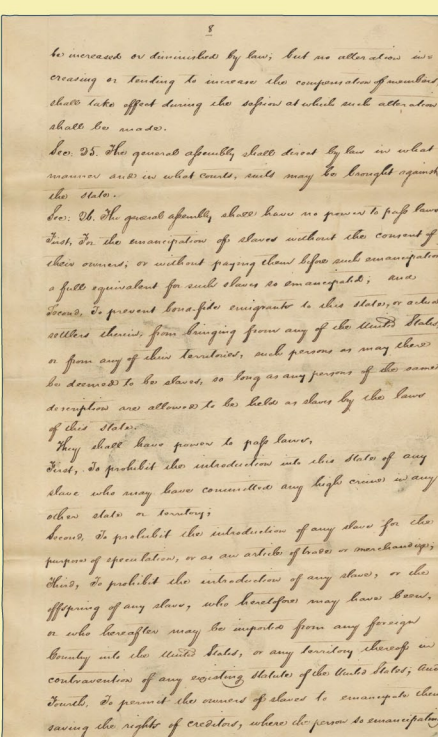 8
be increased or diminished by law; but no alteration in=
creasing or tending to increase the compensation of members,
shall take effect during the session at which such alteration
shall be made.
Sec. 25. The general assembly shall direct by law in what
manner and in what courts, suits may be brought against
the state.
Sec. 26. The general assembly shall have no power to pass laws
First, For the emancipation of slaves without the consent of
their owners; or without paying them before such emancipation
a full equivalent for such slaves so emancipated; and
Second, To prevent bona-fide emigrants to this state, or actual
settlers therein, from bringing from any of the United States,
or from any of their territories, such persons as may there
be deemed to be slaves, so long as any persons of the same
description are allowed to be held as slaves by the laws
of this state.
They shall have power to pass laws,
First, To prohibit the introduction into this state of any
slave who may have committed any high crime in any
other state or territory;
Second, To prohibit the introduction of any slave for the
purpose of speculation, or as an article of trade or merchandise;
Third, To prohibit the introduction of any slave, or the
offspring of any slave, who heretofore may have been,
or who hereafter may be imported from any foreign
Country into the United States, or any territory thereof in
contravention of any existing statute of the United States; And
Fourth, To permit the owners of slaves to emancipate them
saving the rights of creditors, where the person so emancipating